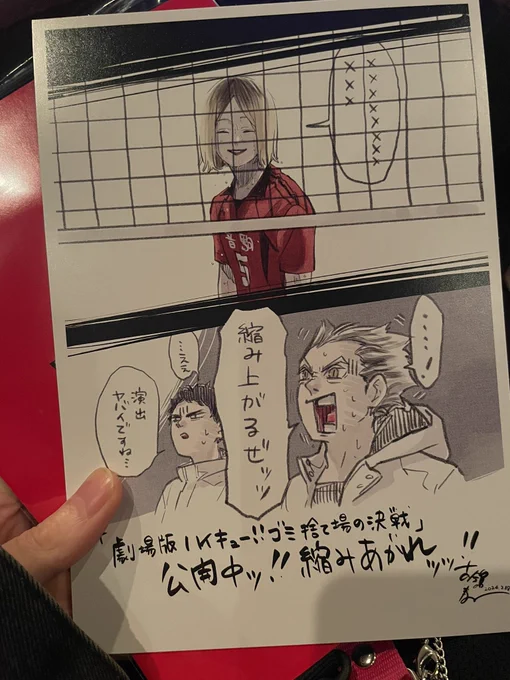 ×××××××××
×××
音駒
5
……!
縮み上がるぜッッ
…ええ
演出
ヤバイですね…
「劇場版ハイキュー!!ゴミ捨て場の決戦」
公開中ッ!!縮みあがれッッ!!
古舘